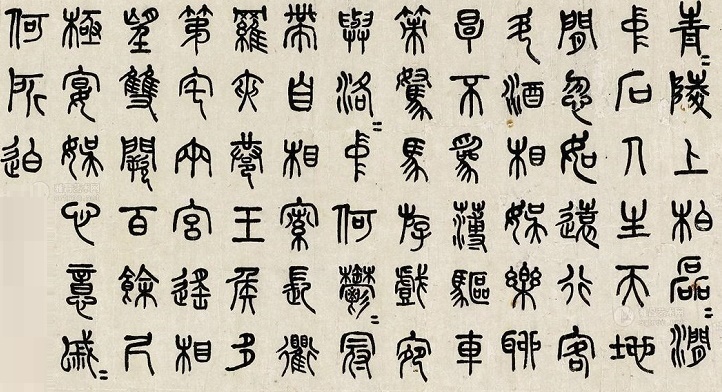 青〻陵上柏磊〻澗
中石人生天地
間忽如遠行客
斗酒相娛樂聊
厚不為薄驅車
策駑馬游戲宛
與洛〻中何鬱〻冠
帶自相索長衢
羅夾巷王侯多
第宅兩宮遙相
望雙闕百餘尺
極宴娛心意戚〻
何所迫